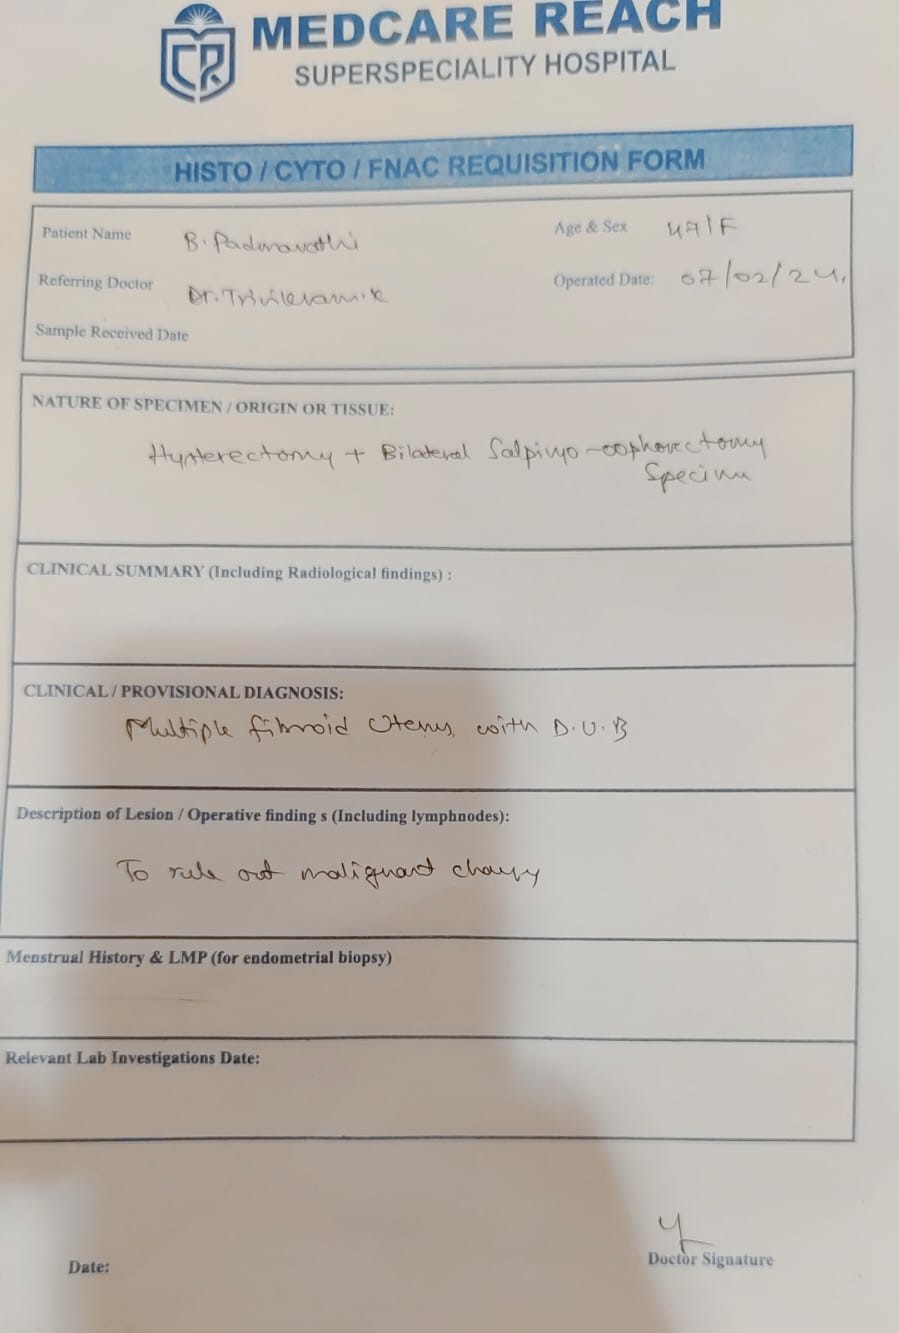 MEDCARE REACH
SUPERSPECIALITY HOSPITAL
HISTO / CYTO / FNAC REQUISITION FORM
Patient Name B. Padmavathi Age & Sex 47/F
Referring Doctor Dr. Trivikram.k Operated Date: 07/02/24.
Sample Received Date
NATURE OF SPECIMEN / ORIGIN OR TISSUE:
Hysterectomy + Bilateral Salpingo-oophorectomy
Specimen
CLINICAL SUMMARY (Including Radiological findings) :
CLINICAL / PROVISIONAL DIAGNOSIS:
Multiple fibroid Uterus with D.U.B
Description of Lesion / Operative finding s (Including lymphnodes):
To rule out malignant
Menstrual History & LMP (for endometrial biopsy)
Relevant Lab Investigations Date:
Date: Doctor Signature